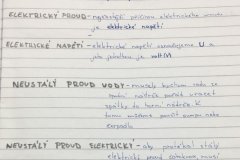 ELEKTRICKÝ PROUD - nejčastější příčinou elektrického proudu
je elektrické napětí
ELEKTRICKÉ NAPĚTÍ - elektrické napětí označujeme U a
jeho jednotkou je volt M
NEUSTÁLÝ PROUD VODY - musela bychom vodu ze
spodní nádrže pořád vracet
zpátky do horní nádrže. K
tomu můžeme použít pumpu nebo
čerpadlo
NEUSTÁLÝ PROUD ELEKTRICKÝ - aby protékal stálý
elektrický proud obvodem, musí